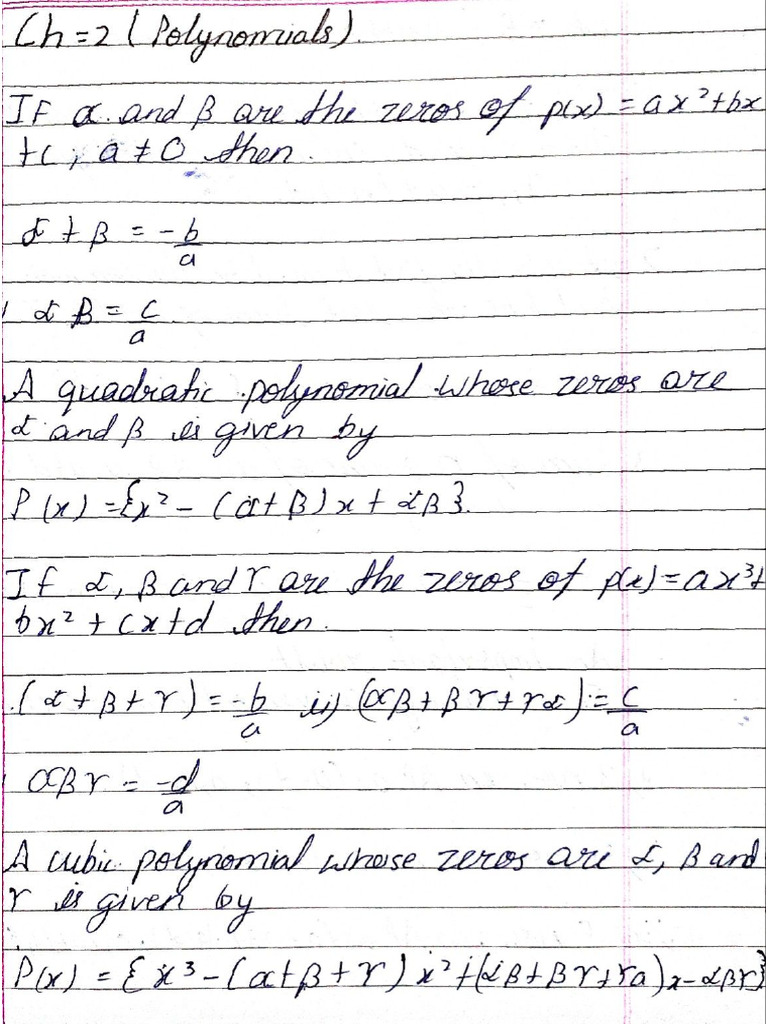 Ch=2 (Polynomials).
If α and β are the zeros of p(x) = ax²+bx
+c, a ≠ 0 then.
α + β = -b/a
α β = c/a
A quadratic polynomial whose zeros are
α and β is given by
P(x) = {x² - (α+β)x + αβ}.
If α, β and γ are the zeros of p(x) = ax³+
bx² + cx+d then.
(α + β + γ) = -b/a ii) (αβ + βγ + γα) = c/a
αβγ = -d/a
A cubic polynomial whose zeros are α, β and
γ is given by
P(x) = {x³ - (α+β+γ)x² + (αβ+βγ+γa)x - αβγ}